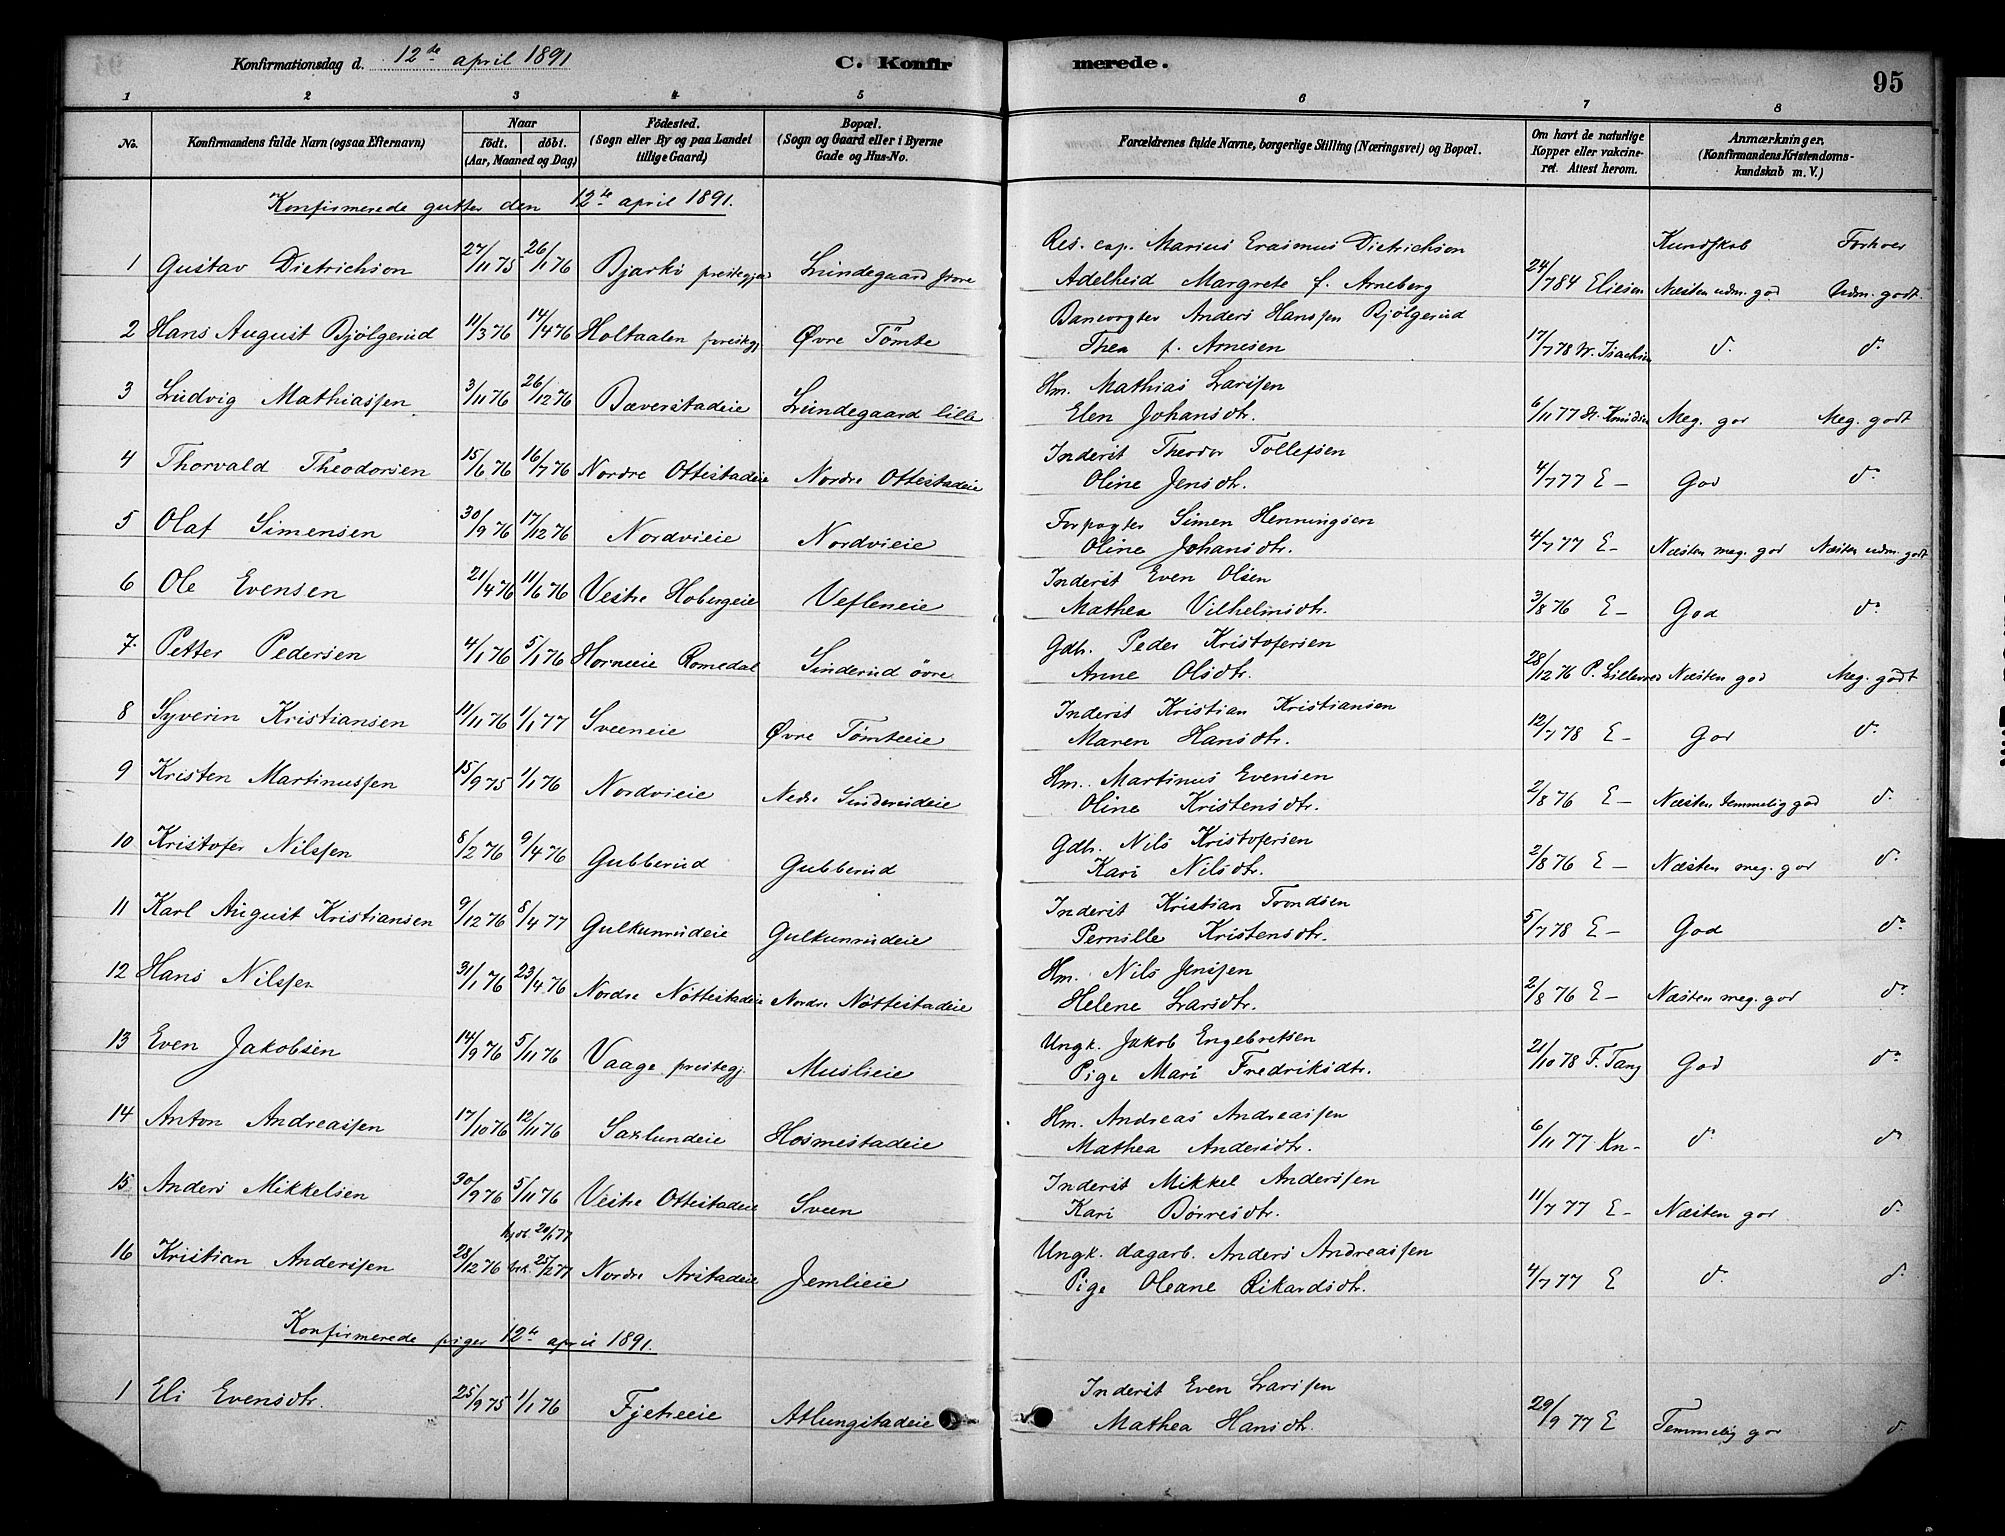 Konfirmationsdag d. 12te april 1891
C. Konfirmerede.
95
1 2 3 4 5 6 7 8
No.
Konfirmandens fulde Navn (ogsaa Efternavn)
Naar
födt. döbt.
(Aar, Maaned og Dag)
Födested.
(Sogn eller By og paa Landet
tillige Gaard)
Bopæl.
(Sogn og Gaard eller i Byerne
Gade og Hus-No.
Forældrenes fulde Navne, borgerlige Stilling (Næringsvei) og Bopæl.
Om havt de naturlige
Kopper eller vakcine-
ret. Attest herom.
Anmærkninger.
(Konfirmandens Kristendoms-
kundskab m. V.)
Konfirmerede gutter den 12te april 1891.
Kundskab Forhold
1 Gustav Dietrichson 27/11 75 26/1 76 Bjarkö prestegjeld Lundegaard store Res. cap. Marius Erasmus Dietrichson
Adelheid Margrete f. Arneberg 24/7 84 Eliesen Næsten udm. god Udm. godt.
2 Hans August Bjölgerud 11/3 76 14/4 76 Holtaalen prestegj Øvre Tömte Banevogter Anders Hanssen Bjölgerud
Thea f. Arnesen 17/7 78 Dr. Isachsen do do
3 Ludvig Mathiassen 3/11 76 26/12 76 Bæverstadeie Lundegaard lille Hm. Mathias Larssen
Elen Johansdtr. 6/11 77 Dr. Knudsen Meg. god Meg. godt
4 Thorvald Theodorsen 15/6 76 16/7 76 Nordre Ottestadeie Nordre Ottestadeie Inderst Theodor Tollefsen
Oline Jensdtr. 4/7 77 E- God do
5 Olaf Simensen 30/9 76 17/12 76 Nordvieie Nordvieie Forpagter Simen Henningsen
Oline Johansdtr. 4/7 77 E- Næsten meg. god Næsten udm. godt
6 Ole Evensen 21/4 76 11/6 76 Vestre Hobergeie Vefleneie Inderst Even Olsen
Mathea Vilhelmsdtr. 3/8 76 E- God do
7. Petter Pedersen 4/1 76 5/1 76 Horneeie Romedal Sinderud övre Gdb. Peder Kristofersen
Anne Olsdtr. 28/12 76 P. Lillevred Næsten god Meg. godt
8 Syverin Kristiansen 11/11 76 1/1 77 Sveeneie Øvre Tömteeie Inderst Kristian Kristiansen
Maren Hansdtr. 12/7 78 E- God do
9 Kristen Martinussen 15/9 75 1/1 76 Nordvieie Nedre Sinderudeie Hm. Martinus Evensen
Oline Kristensdtr. 2/8 76 E- Næsten temmelig god do
10 Kristofer Nilssen 8/2 76 9/4 76 Gubberud Gubberud Gdb. Nils Kristofersen
Kari Nilsdtr. 2/8 76 E- Næsten meg. god do
11 Karl August Kristiansen 9/12 76 8/4 77 Gulkunrudeie Gulkunrudeie Inderst Kristian Trondsen
Pernille Kristensdtr. 5/7 78 E- God do
12 Hans Nilssen 31/1 76 23/4 76 Nordre Nöttestadeie Nordre Nöttestadeie Hm. Nils Jenssen
Helene Larsdtr. 2/8 76 E- Næsten meg. god do
13 Even Jakobsen 14/9 76 5/11 76 Vaage prestegj. Muslieie Ungk. Jakob Engebretsen
Pige Mari Fredriksdtr. 21/10 78 F. Tang God do
14 Anton Andreassen 17/10 76 12/11 76 Saxlundeie Hosmestadeie Hm. Andreas Andreassen
Mathea Andersdtr. 6/11 77 Kn- do do
15 Anders Mikkelsen 30/9 76 5/11 76 Vestre Ottestadeie Sveen Inderst Mikkel Anderssen
Kari Börresdtr. 11/7 77 E- Næsten god do
16 Kristian Anderssen 28/12 76 hjdt. 20/1 77
bek. 25/2 77 Nordre Arstadeie Jemlieie Ungk. dagarb. Anders Andreassen
Pige Oleane Rikardsdtr. 4/7 77 E do do
Konfirmerede piger 12te april 1891.
1 Eli Evensdtr. 25/9 75 1/1 76 Fjetreeie Atlungstadeie Inderst Even Larssen
Mathea Hansdtr. 29/9 77 E Temmelig god do